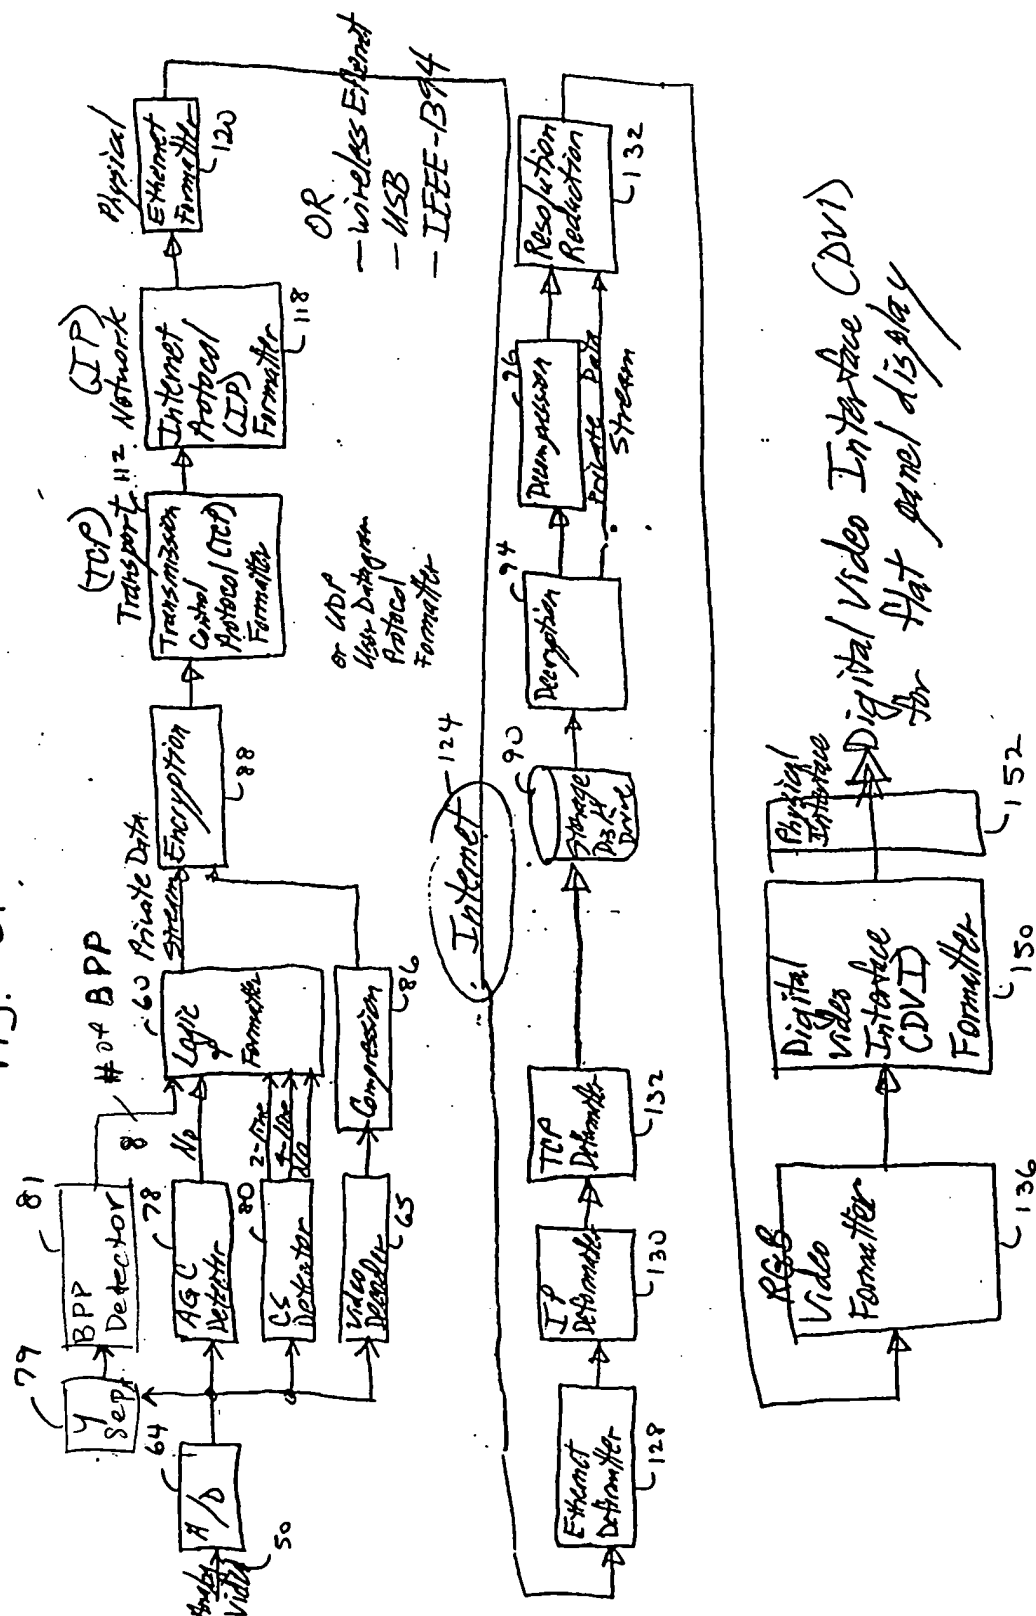 Analog
Video
50
A/D
64
Y
Sep.
79
BPP
Detector
81
8
# of BPP
AGC
Detector
78
No
CS
Detector
80
2-line
4-line
Video
Decoder
65
Compression
86
Logic
&
Formatter
60
Private Data
Stream
Encryption
88
(TCP)
Transport
112
Transmission
Control
Protocol (TCP)
Formatter
or UDP
User Datagram
Protocol
Formatter
(IP)
Network
Internet
Protocol
(IP)
Formatter
118
Physical
Ethernet
Formatter
120
OR
- Wireless Ethernet
- USB
- IEEE-1394
Internet
124
Ethernet
Deformatter
128
IP
Deformatter
130
TCP
Deformatter
132
Storage
Disk
Drive
90
Decryption
94
Decompression
96
Private Data
Stream
Resolution
Reduction
132
RGB
Video
Formatter
136
Digital
Video
Interface
(DVI)
Formatter
150
Physical
Interface
152
Digital Video Interface (DVI)
for flat panel display